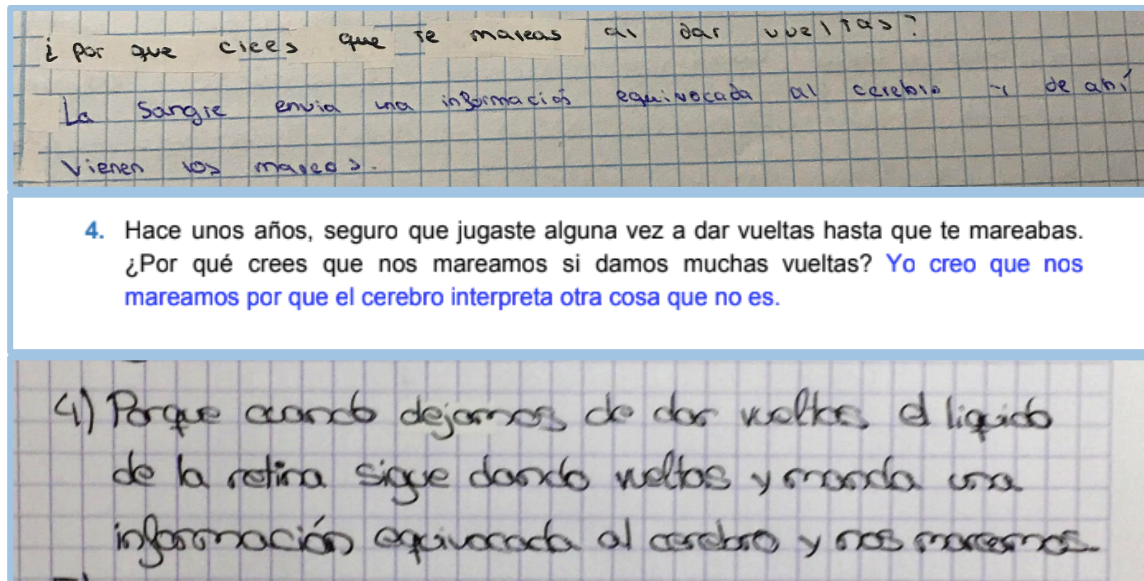 ¿ Por que crees que te mareas al dar vueltas?
La Sangre envia una informacion equivocada al cerebro y de ahí
vienen los mareos.
4. Hace unos años, seguro que jugaste alguna vez a dar vueltas hasta que te mareabas.
¿Por qué crees que nos mareamos si damos muchas vueltas? Yo creo que nos
mareamos por que el cerebro interpreta otra cosa que no es.
4) Porque cuando dejamos de dar vueltas el liquido
de la retina sigue dando vueltas y manda una
información equivocada al cerebro y nos mareamos.